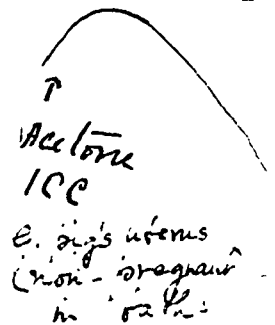 Acetone
1 CC
pig's uterus
(non-pregnant
in